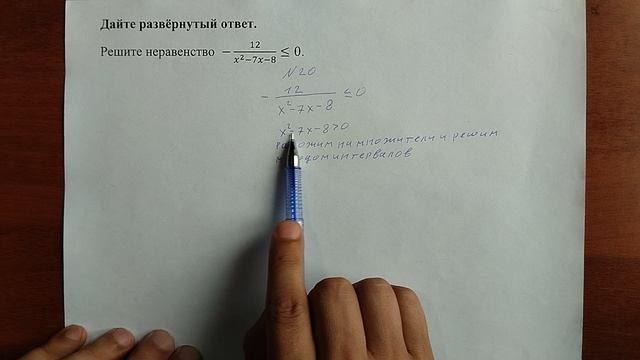 Дайте развёрнутый ответ.
Решите неравенство −12/(x²−7x−8) ≤ 0.
N20
−12/(x²−7x−8) ≤ 0
x²−7x−8>0
на множители и решим
интервалов